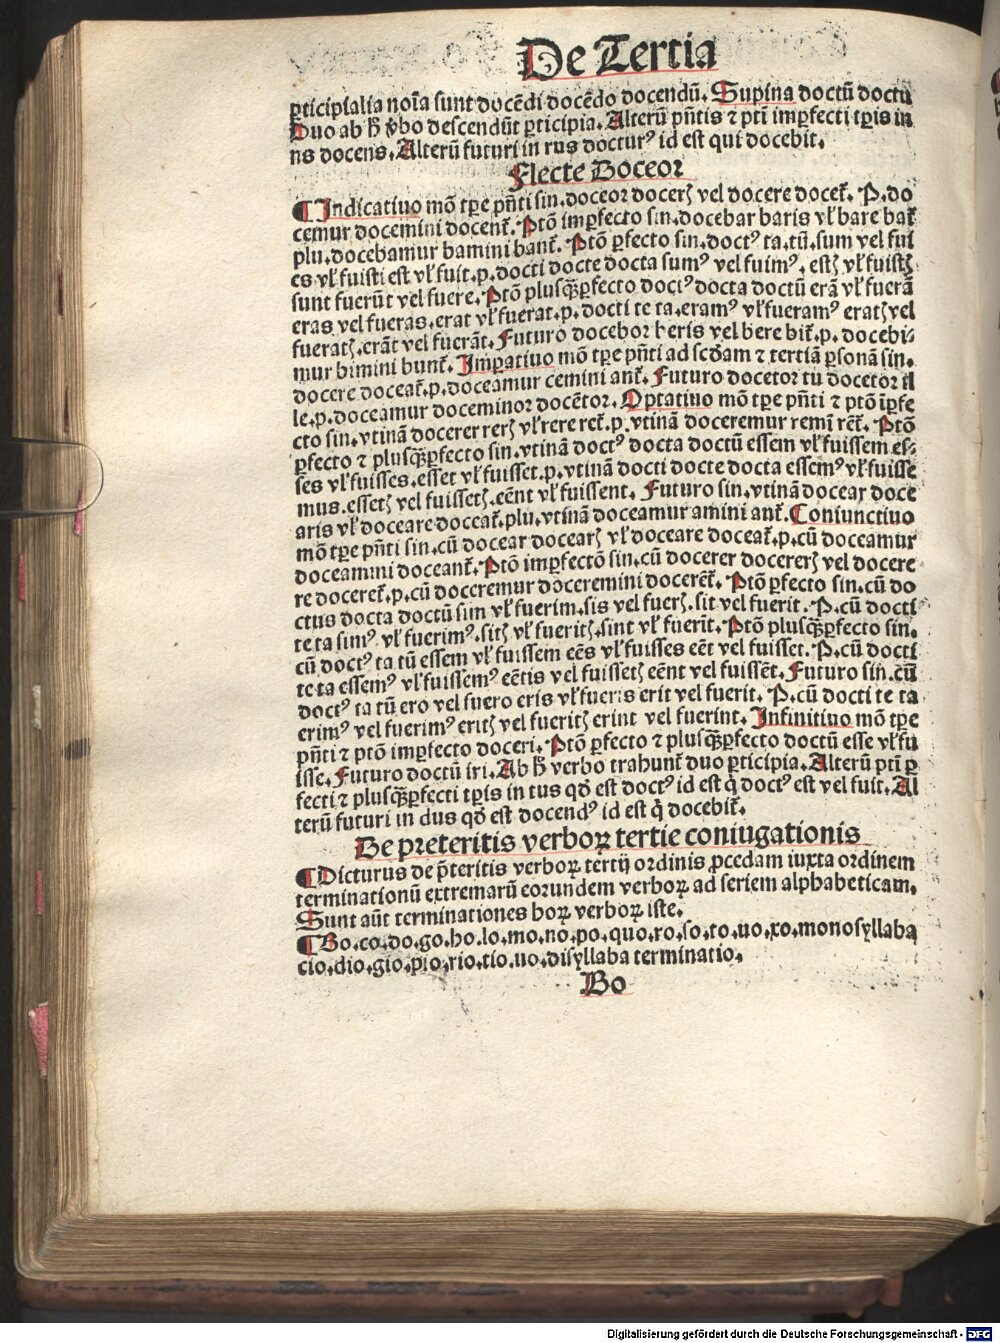 De Tertia
ꝑticipialia noīa sunt docēdi docēdo docendū. Supina doctū doctu
Duo ab h̄ v̄bo descendūt ꝑticipia. Alterū pn̄tis ⁊ ptī imꝑfecti tꝑis in
ns docens. Alterū futuri in rus docturꝰ id est qui docebit.
Flecte Doceor
¶ Indicatiuo mō tꝑe pn̄ti sin. doceor docerꝭ vel docere docet᷑. P. do
cemur docemini docent᷑. Ptō imꝑfecto sin. docebar baris vl̄ bare bat᷑
plu. docebamur bamini bant᷑. Ptō ꝑfecto sin. doctꝰ ta. tū. sum vel fui
es vl̄ fuisti est vl̄ fuit. p. docti docte docta sumꝰ vel fuimꝰ. estꝭ vl̄ fuistꝭ
sunt fuerūt vel fuere. Ptō plusqꝫꝑfecto doctꝰ docta doctū erā vl̄ fuerā
eras vel fueras. erat vl̄ fuerat. p. docti te ta. eramꝰ vl̄ fueramꝰ eratꝭ vel
fueratꝭ. erāt vel fuerāt. Futuro docebor beris vel bere bit᷑. p. docebi⸗
mur bimini bunt᷑. Imꝑatiuo mō tꝑe pn̄ti ad scd̄am ⁊ tertiā ꝑsonā sin.
docere doceat᷑. p. doceamur cemini ant᷑. Futuro docetor tu docetor il
le. p. doceamur doceminor docētor. Optatiuo mō tꝑe pn̄ti ⁊ ptō īꝑfe
cto sin. vtinā docerer rerꝭ vl̄ rere ret᷑. p. vtinā doceremur remī rēt᷑. Ptō
ꝑfecto ⁊ plusqꝫꝑfecto sin. vtinā doctꝰ docta doctū essem vl̄ fuissem es⸗
ses vl̄ fuisses. esset vl̄ fuisset. p. vtinā docti docte docta essemꝰ vl̄ fuisse
mus. essetꝭ vel fuissetꝭ. eēnt vl̄ fuissent. Futuro sin. vtinā docear doce
aris vl̄ doceare doceat᷑. plu. vtinā doceamur amini ant᷑. Coniunctiuo
mō tꝑe pn̄ti sin. cū docear docearꝭ vl̄ doceare doceat᷑. p. cū doceamur
doceamini doceant᷑. Ptō imꝑfectō sin. cū docerer docererꝭ vel docere
re doceret᷑. p. cū doceremur doceremini docerēt᷑. Ptō ꝑfecto sin. cū do
ctus docta doctū sim vl̄ fuerim. sis vel fuerꝭ. sit vel fuerit. P. cū docti
te ta simꝰ. vl̄ fuerimꝰ. sitꝭ vl̄ fueritꝭ. sint vl̄ fuerīt. Ptō plusqꝫꝑfecto sin.
cū doctꝰ ta tū essem vl̄ fuissem eēs vl̄ fuisses eēt vel fuisset. P. cū docti
te ta essemꝰ vl̄ fuissemꝰ eētis vel fuissetꝭ eēnt vel fuissēt. Futuro sin. cū
doctꝰ ta tū ero vel fuero eris vl̄ fueris erit vel fuerit. P. cū docti te ta
erimꝰ vel fuerimꝰ eritꝭ vel fueritꝭ erint vel fuerint. Infinitiuo mō tꝑe
pn̄ti ⁊ ptō imꝑfecto doceri. Ptō ꝑfecto ⁊ plusqꝫꝑfecto doctū esse vl̄ fu
isse. Futuro doctū iri. Ab h̄ verbo trahunt᷑ duo ꝑticipia. Alterū ptī ꝑ
fecti ⁊ plusqꝫꝑfecti tꝑis in tus qd̄ est doctꝰ id est q̇ doctꝰ est vel fuit. Al
terū futuri in dus qd̄ est docendꝰ id est q̇ docebit᷑.
De preteritis verboꝝ tertie coniugationis
¶ Dicturus de p̄teritis verboꝝ tertij ordinis ꝓcedam iuxta ordinem
terminationū extremarū eorundem verboꝝ ad seriem alphabeticam.
Sunt aūt terminationes hoꝝ verboꝝ iste.
¶ Bo. co. do. go. ho. lo. mo. no. po. quo. ro. so. to. uo. xo. monosyllaba
cio. dio. gio. pio. rio. tio. uo. disyllaba terminatio.
Bo
Digitalisierung gefördert durch die Deutsche Forschungsgemeinschaft - DFG